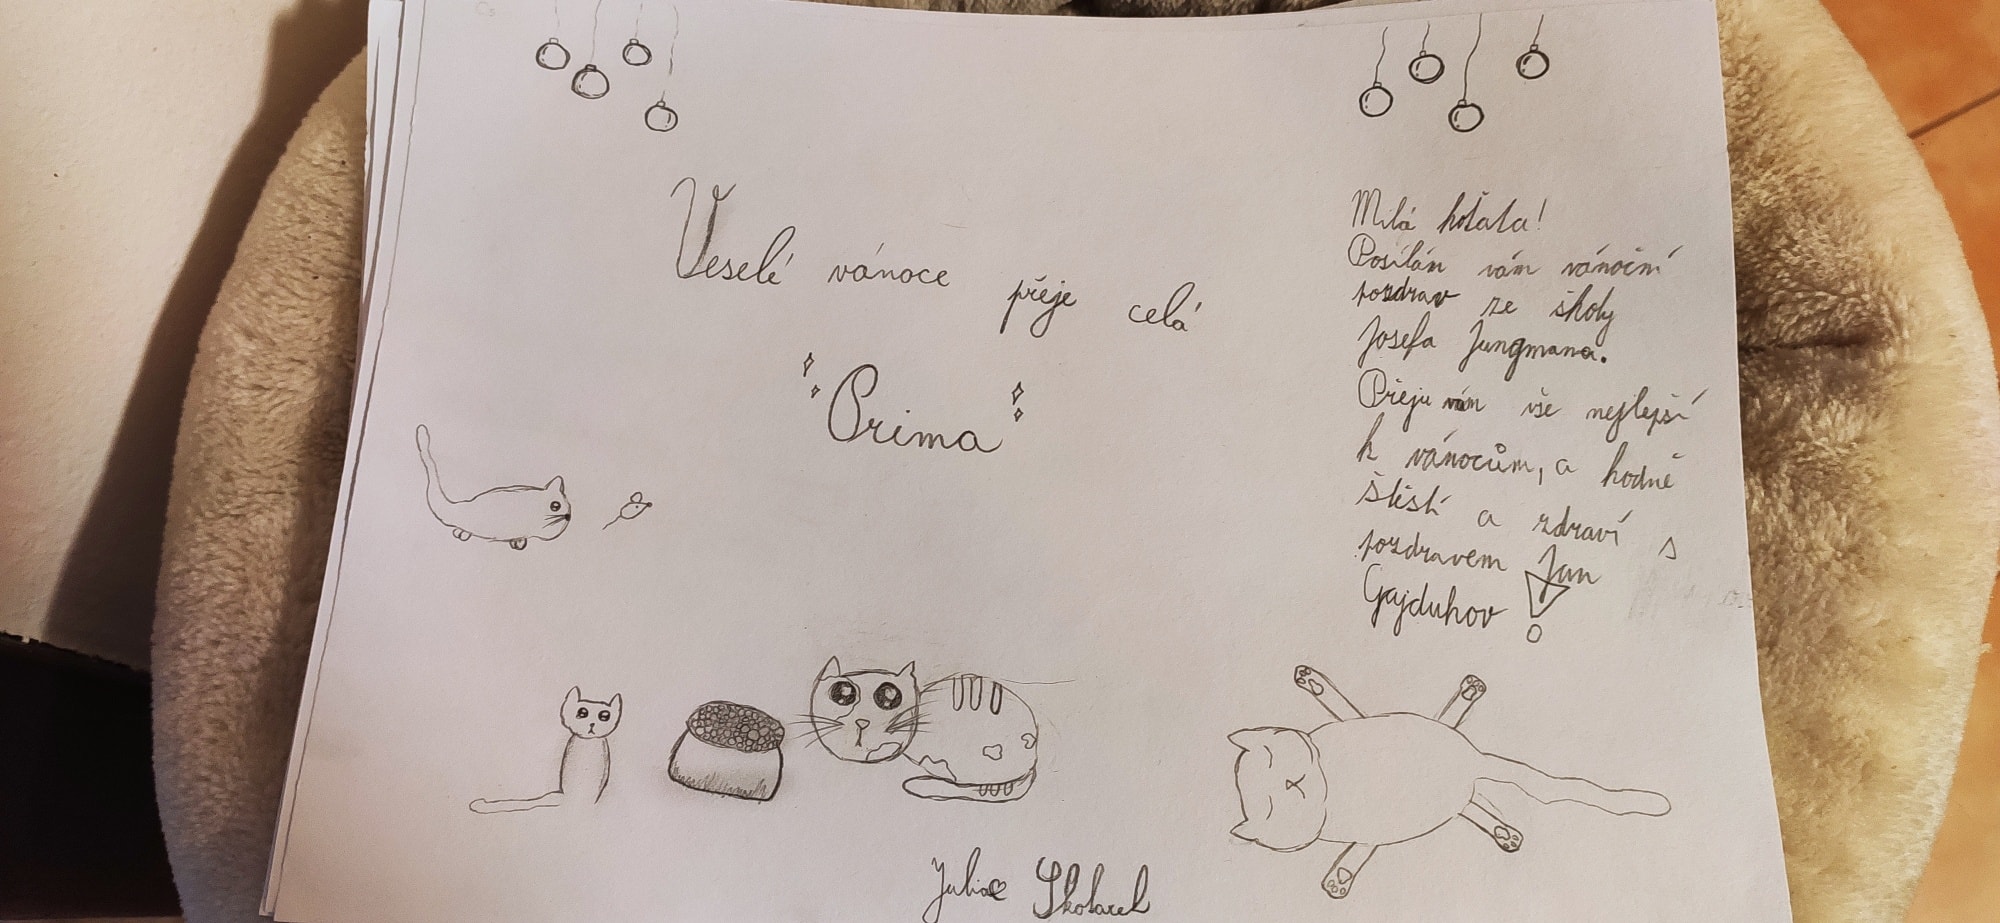 Veselé vánoce přeje celá
Prima
Milá koťata!
Posílám vám vánoční
pozdrav ze školy
Josefa Jungmana.
Přeju vám vše nejlepší
k vánocům, a hodně
štěstí a zdraví s
pozdravem Jan
Gajduhov
Julia